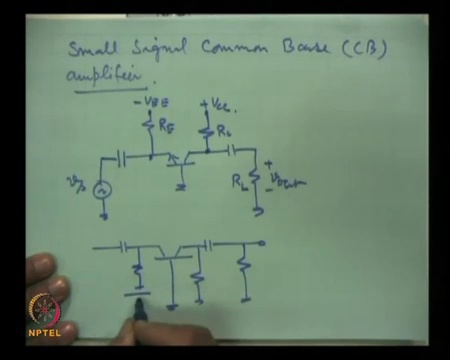 Small Signal Common Base (CB)
amplifier.
- VEE
+ Vcc.
RE
RL
vs
RL
+
vout
-
NPTEL